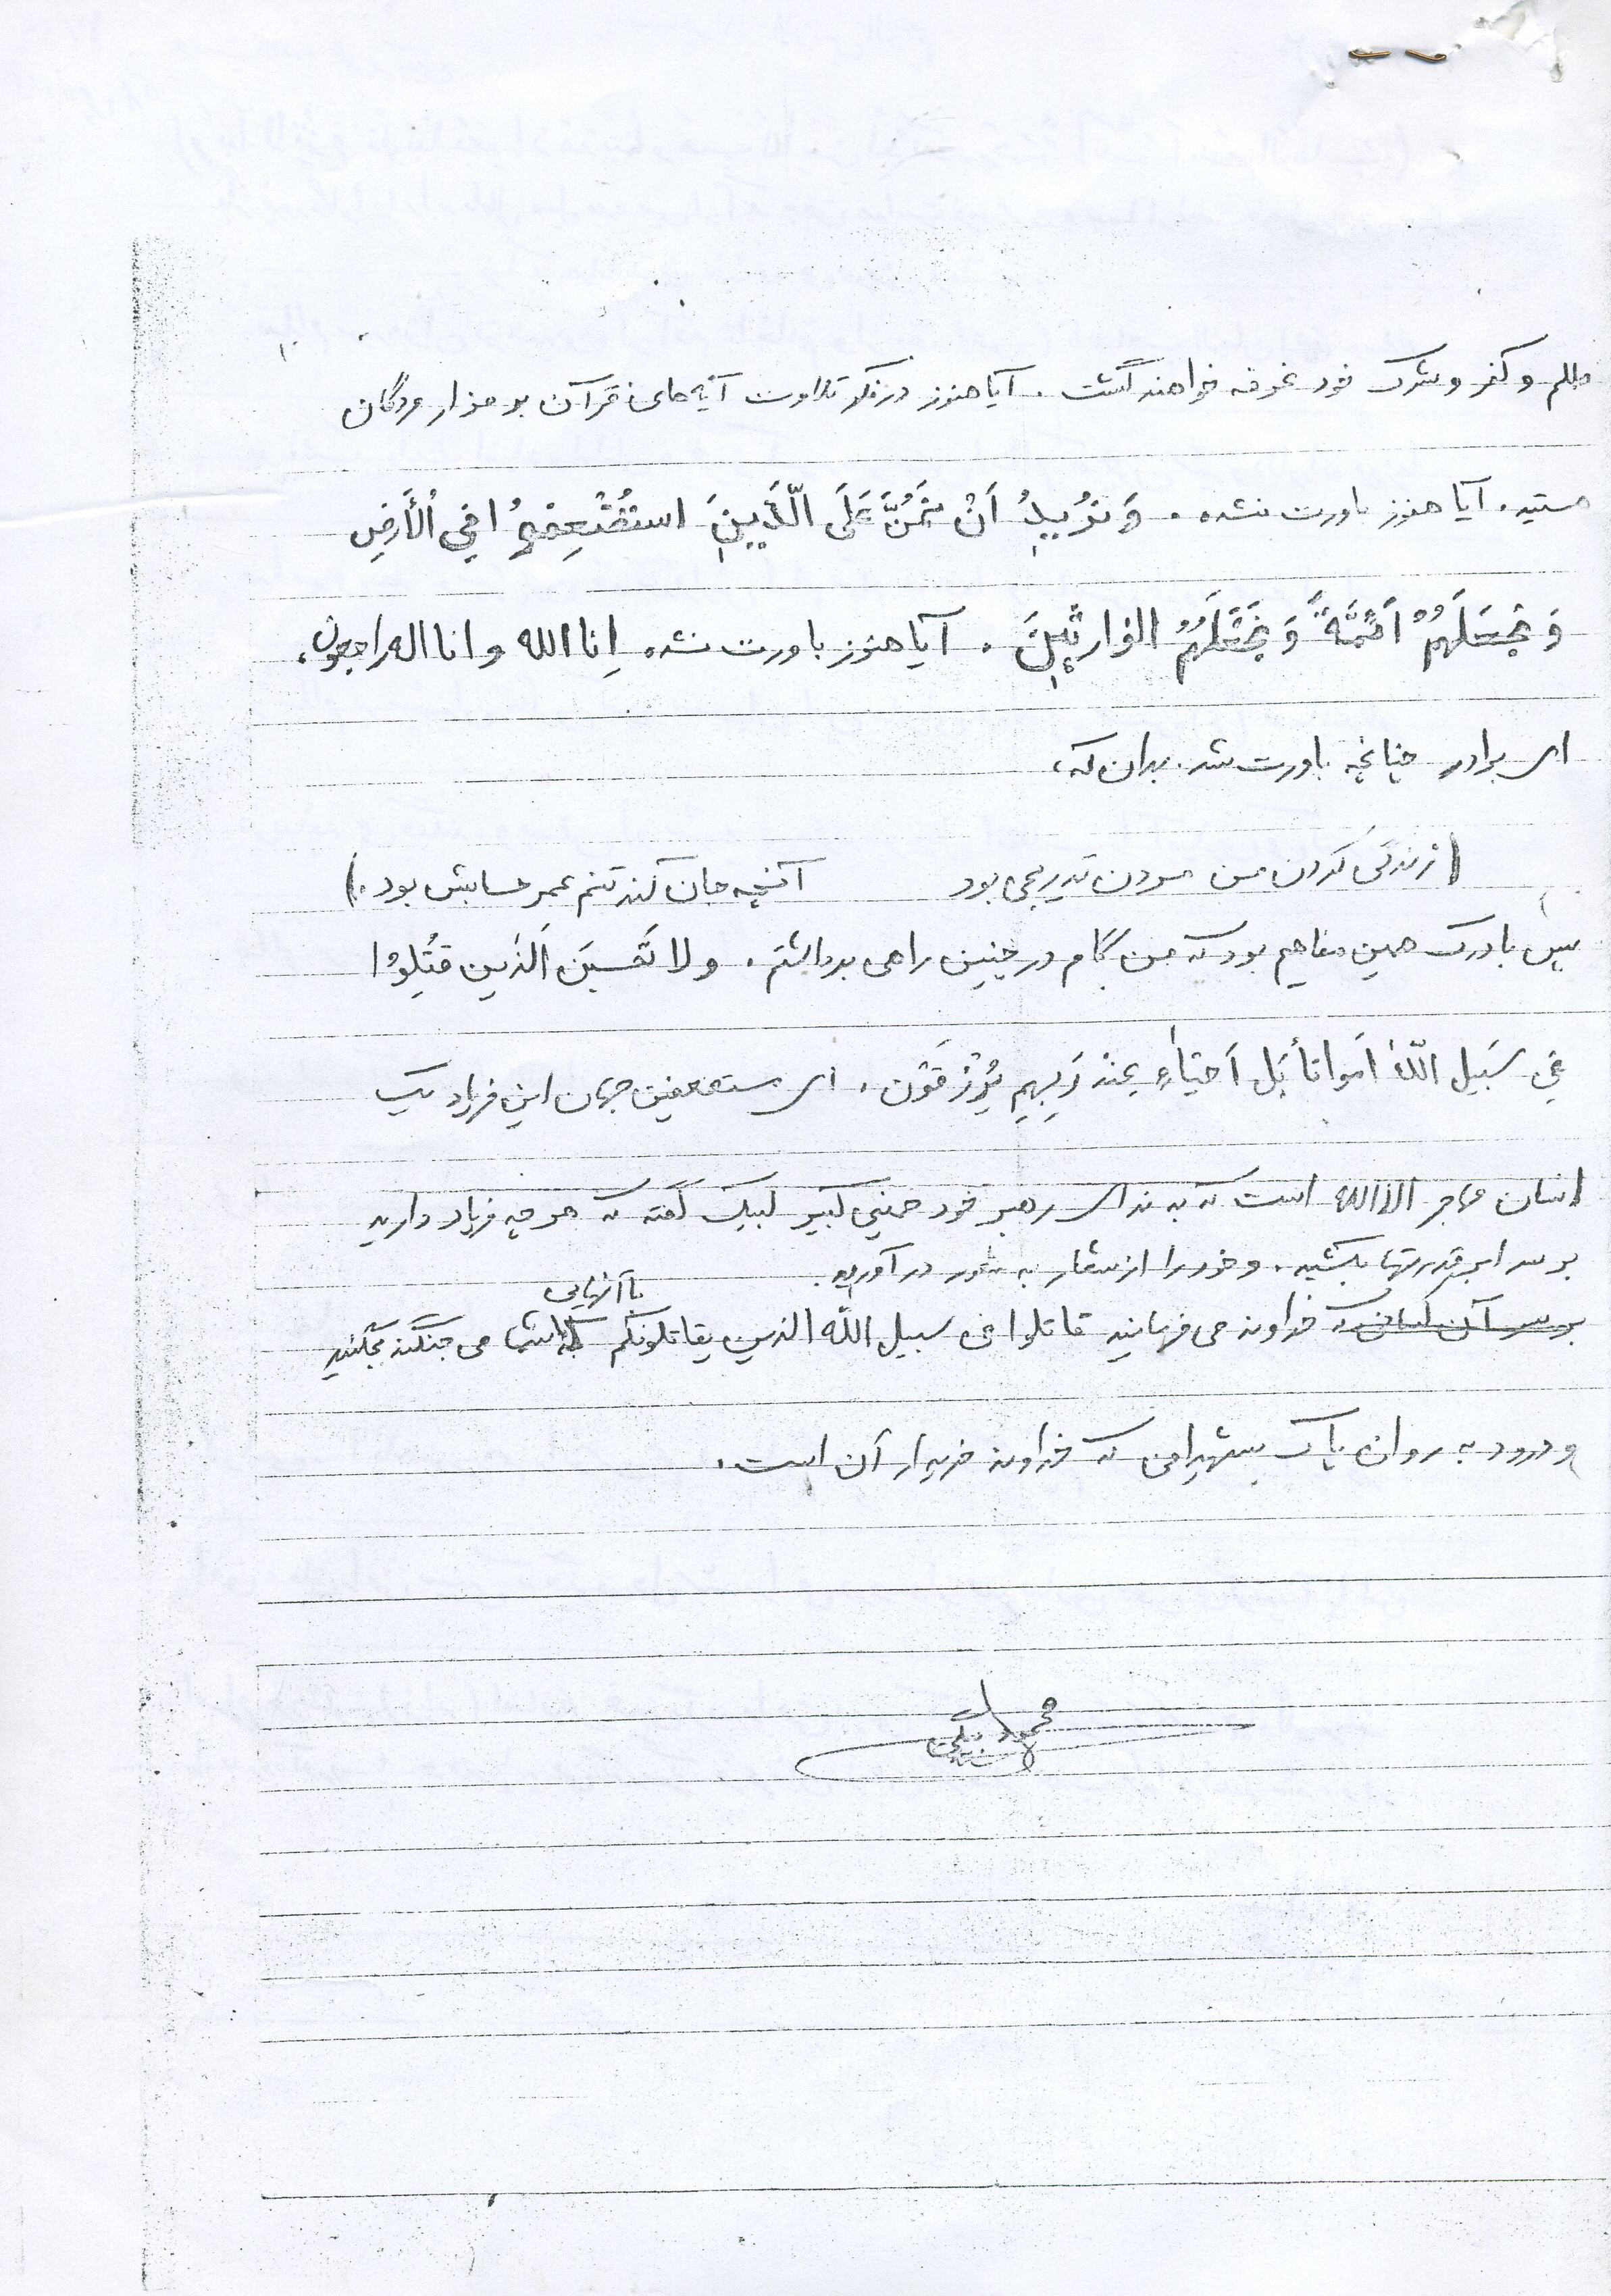 ظلم و کفر و شرک خود غوقه خواهند گشت . آیا هنوز در فکر تلاوت آیه های قرآن بر مزار مردگان
هستید . آیا هنوز باورت نشده . وَ نُرُیدُ اَنْ نَمُنَّ عَلَی الَّذَیِنَ استُضْعِفوُا فِي الْأَرضِ
وَ نَجعَلَهُمْ اَئمَّةً وَ نَجعَلَهُمُ الوارثیِنَ . آیا هنوز باورت نشده اِنا الله و انا اله راجعون .
ای برادر چنانچه باورت شد . بدان که ،
(زندگی کردن من مردن تدریجی بود آنچه جان کند تنم عمر حسابش بود .)
پس با درک همین مفاهیم بود که من گام در چنین راهی برداشتم . و لا تَحسَبَنَ اَلذَین قتُلِوُا
في سَبَیل اللّهُ اَمواتاً بَل اَحیَاءِ عِندَ رَبِهِم یُرْزَقَوُن . ای مستضعفین جهان این فریاد یک
انسان مهاجر الا الله است که به ندای رهبر خود خمینی کبیر لبیک گفته که هر چه فریاد دارید
بر سر ابرقدرتها بکشید . و خود را از شعار به شعور در آورید .
با آنهایی
بر سر آن کسانی که خداوند می فرمایند قاتلوا فی سبیل الله الذین یقاتلونکم که با شما می جنگند بجنگید
و درود به روان پاک شهدامی که خداوند خریدار آن است .
محمود